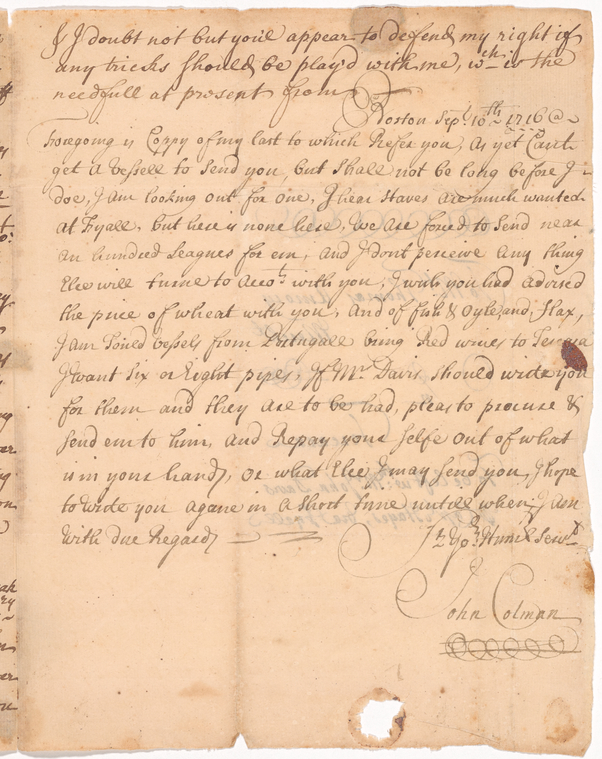 & I doubt not but you'l appear to defend my right if
any tricks should be play'd with me, wch is the
needfull at present from
Boston Sepr 10th 1716 @
Foregoing is Coppy of my last to which Refer you, As yet Cant
get a Vessell to Send you, but Shall not be long before I
doe, I Am looking out for one, I hear Staves Are much wanted
At Fyall, but here is none here, We Are forced to Send near
An hundred Leagues for em, And I dont perceive Any thing
Else will turne to Accot with you, I wish you had advised
the price of wheat with you, And of fish & oyle, and, flax,
I Am Tould vessels from Portugall bring Red wines to
I want Six or Eight pipes, If Mr Davis should write you
for them and they Are to be had, pleas to procure &
Send em to him, And Repay your Selfe Out of what
is in your hands, Or what Else I may Send you, I hope
to write you agane in A Short time untill when, I Am
With due Regard
Sr Yor Humle Servt
John Colman